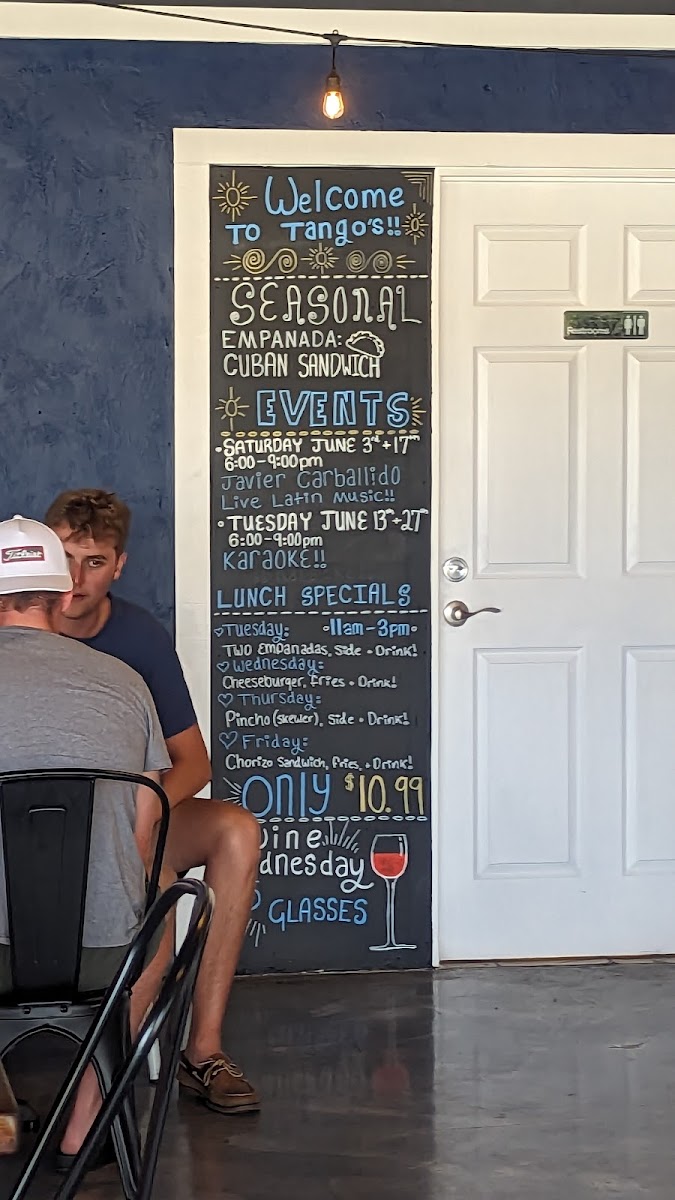 Welcome
To Tango's!!
SEASONAL
EMPANADA:
CUBAN SANDWICH
EVENTS
• SATURDAY JUNE 3rd + 17th
6:00-9:00pm
Javier Carballido
Live Latin Music!!
• TUESDAY JUNE 13th + 27th
6:00-9:00pm
KaraoKE!!
LUNCH SPECIALS
♡ Tuesday: •11am-3pm•
TWO Empanadas, Side + Drink!
♡ Wednesday:
Cheeseburger, fries + Drink!
♡ Thursday:
Pincho (skewer), Side + Drink!
♡ Friday:
Chorizo Sandwich, fries, + Drink!
Only $10.99
ine
dnesday
GLASSES
Restrooms
Titleist